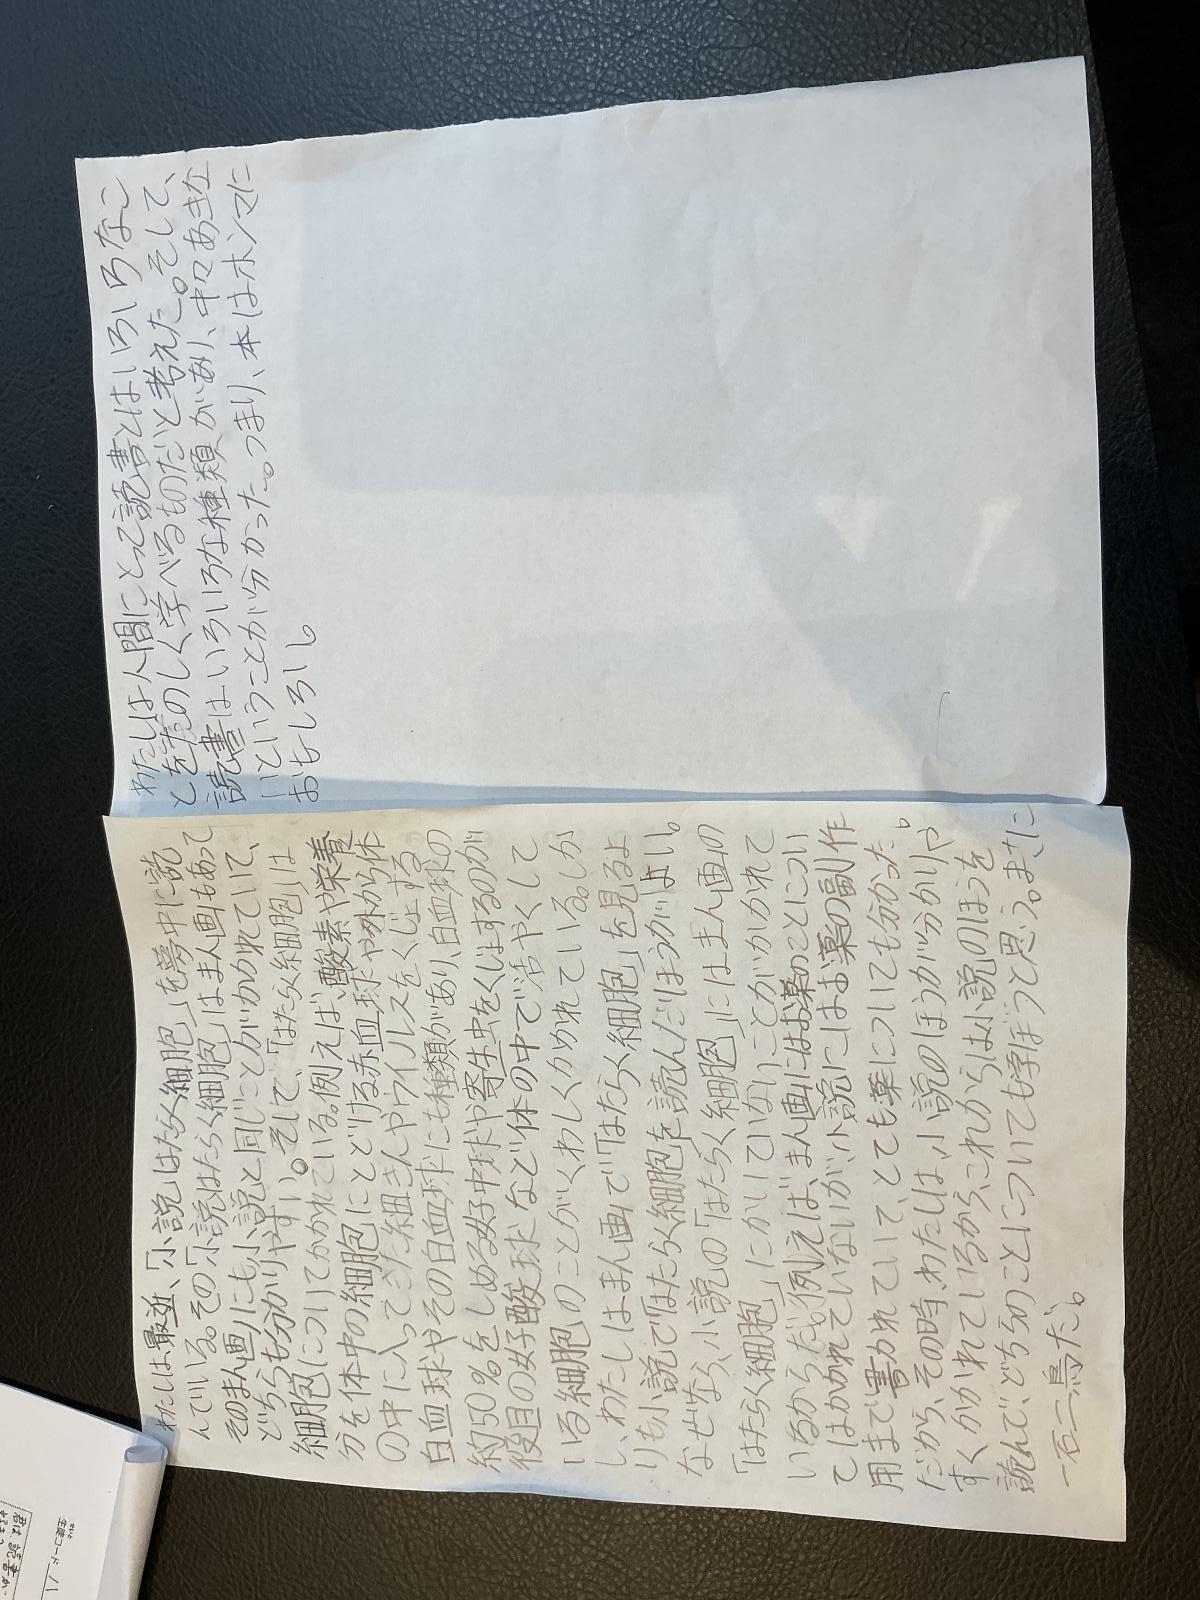 わたしは最近、「小説はたらく細胞」を夢中に読
んでいる。その「小説はたらく細胞」はまん画もあって
そのまん画にも小説と同じことがかかれていて、
どちらも分かりやすい。そして、「はたらく細胞」は
細胞についてかかれている。例えば、酸素や栄養
分を体中の細胞にとどける赤血球や外から体
の中に入ってきた細きんやウイルスをくじょする
白血球やその白血球にも種類があり、白血球の
約50%をしめる好中球や寄生虫をくじょするのが
役目の好酸球など体の中で活やくして
いる細胞のことがくわしくかかれている。しか
し、わたしはまん画で「はたらく細胞」を見るよ
りも小説で「はたらく細胞」を読んだほうがよい。
なぜなら、小説の「はたらく細胞」にはまん画の
「はたらく細胞」にかいていないことがかかれて
いるからだ。例えば、まん画にはお薬のことについ
てはかかれていないが、小説にはお薬の副作
用まで書かれていて、とても薬についても分かった。
だから、その時、わたしは、小説のほうが分かりや
すくかかれているから、これからは小説のほうを
読んで、どちらのことについても学ぼうと思う。まさに
一石二鳥だ。
わたしは人間にとって読書とはいろいろなこ
とをたのしく学べるものだと考えた。そして、
読書はいろいろな種類があり、中々あきな
いということが分かった。つまり、本はホンマに
おもしろい。
生徒コード
君は、読書が
好き?